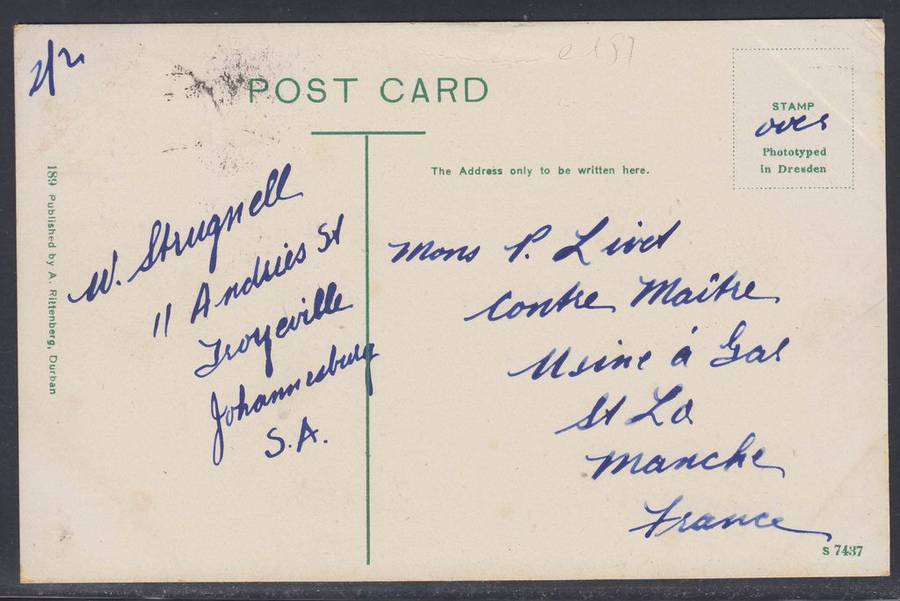 2/21
e 187
POST CARD
STAMP
over
Phototyped
in Dresden
The Address only to be written here.
189 Published by A. Rittenberg, Durban
W. Strugnell
11 Andries St
Troyeville
Johannesburg
S.A.
Mons P. Livet
Contre Maître
Usine à Gas
St Lo
Manche
France
S 7437